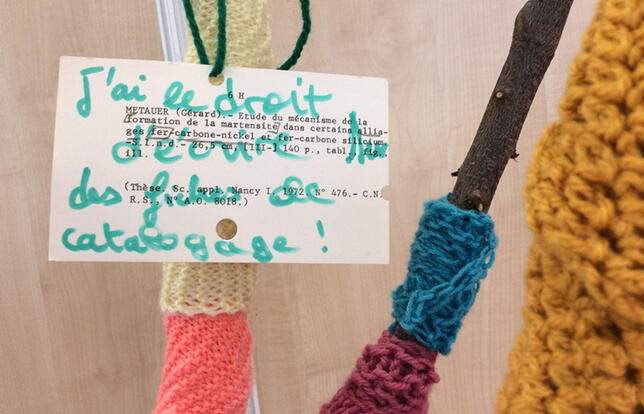 J'ai le droit
d'écrire sur
des fiches de
catalogage !
6 H
METAUER (Gérard).- Etude du mécanisme de la
formation de la martensite dans certains allia-
ges fer-carbone-nickel et fer-carbone silicium
-S.l.n.d.- 26,5 cm, [III-] 140 p., tabl., fig.,
ill.
(Thèse. Sc. appl. Nancy I. 1972. N° 476.- C.N.
R.S., N° A.O. 8018.)